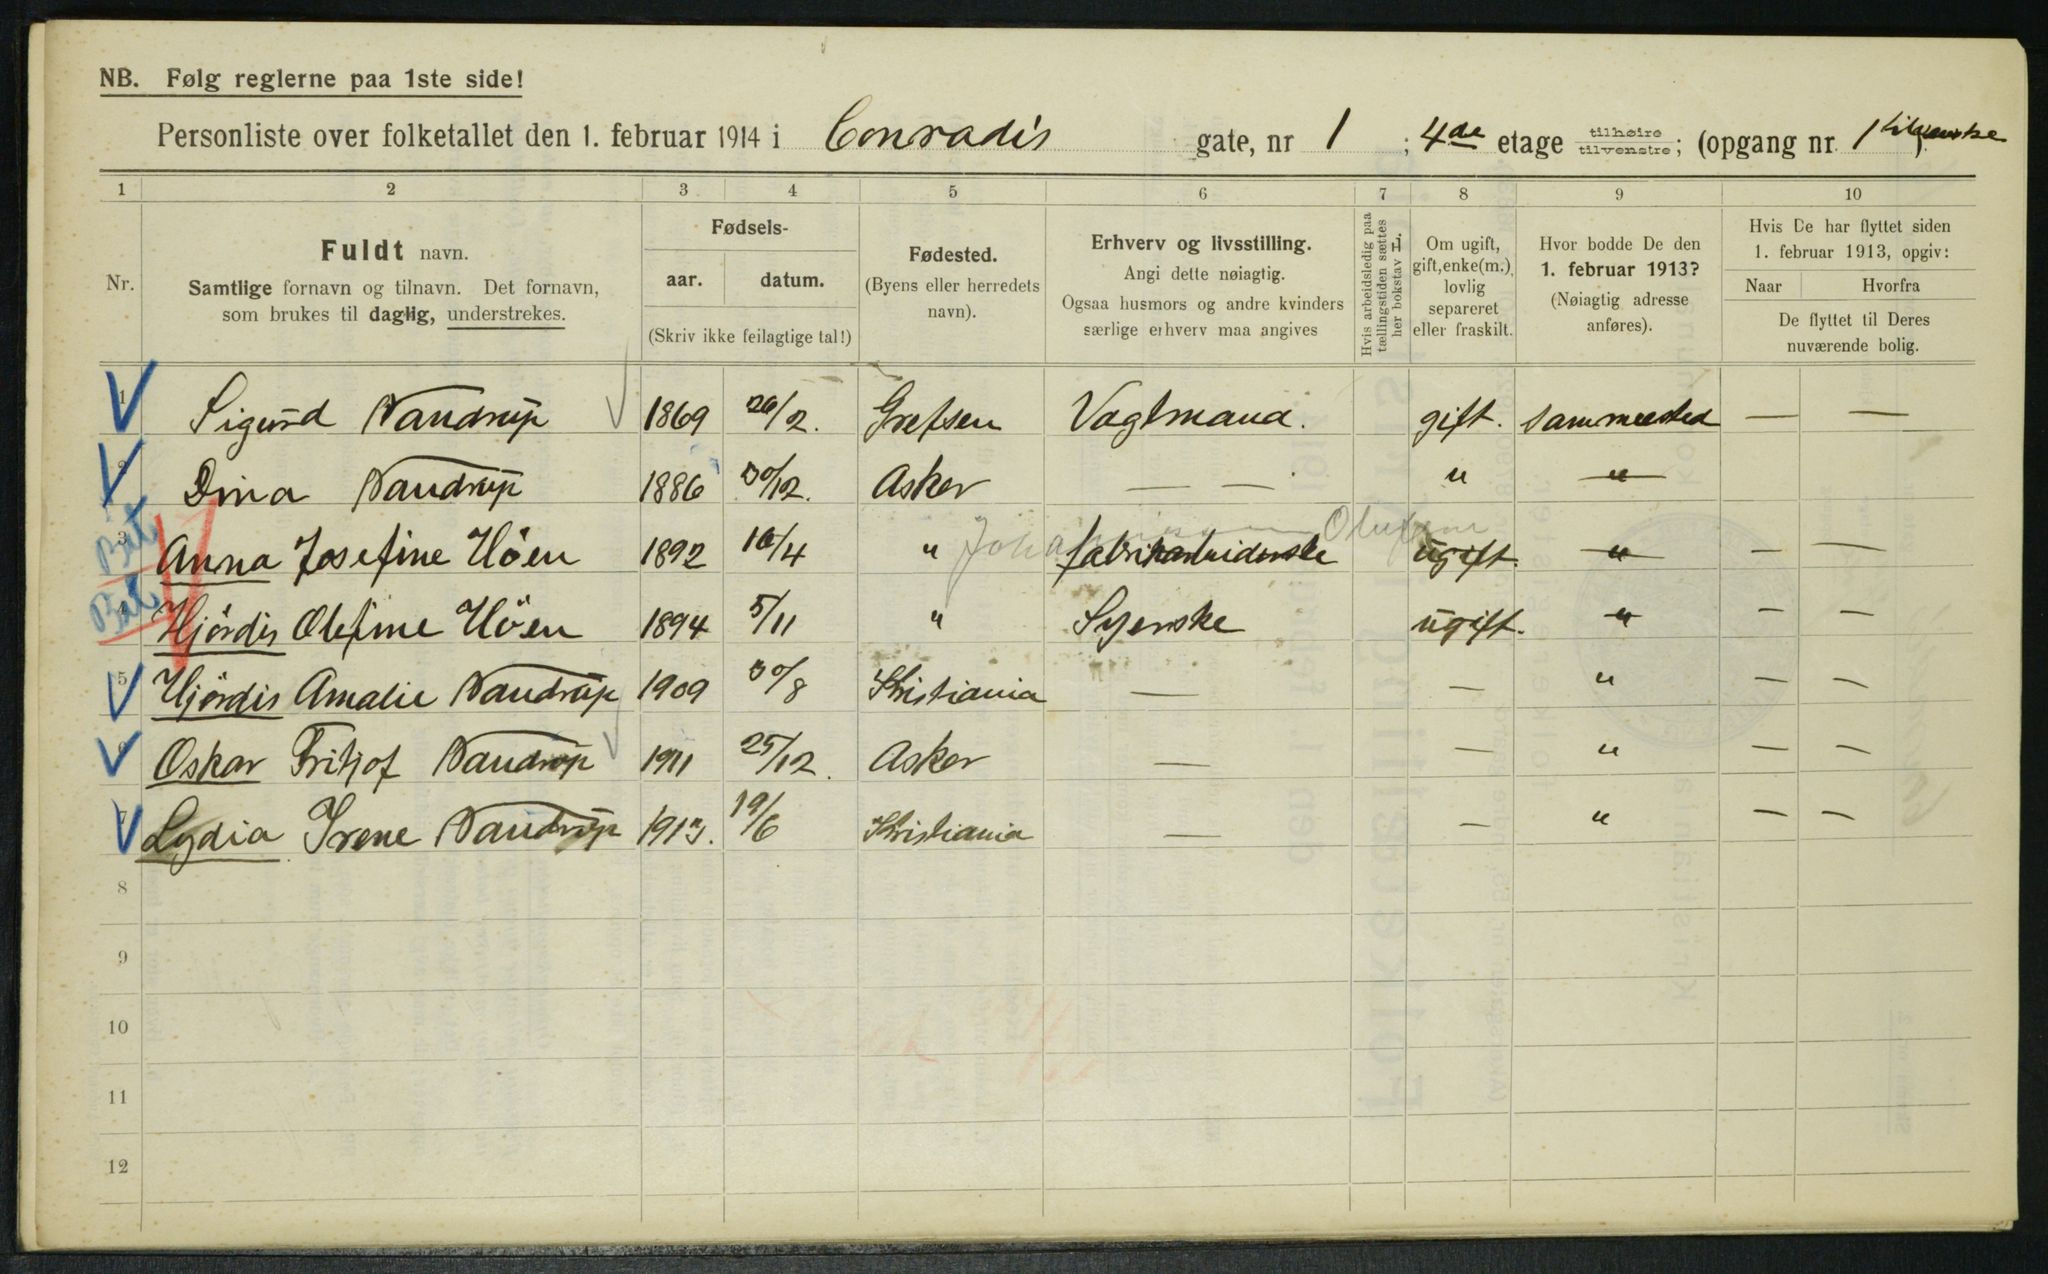 NB. Følg reglerne paa 1ste side!
Personliste over folketallet den 1. februar 1914 i Conradis gate, nr 1 ; 4de etage tilhøire tilvenstre; (opgang nr. 1 tilvenstre)
1 2 3 4 5 6 7 8 9 10
Nr.
Fuldt navn.
Samtlige fornavn og tilnavn. Det fornavn,
som brukes til daglig, understrekes.
Fødsels-
aar. datum.
(Skriv ikke feilagtige tal!)
Fødested.
(Byens eller herredets
navn).
Erhverv og livsstilling.
Angi dette nøiagtig.
Ogsaa husmors og andre kvinders
særlige erhverv maa angives
Hvis arbeidsledig paa
tællingstiden sættes
her bokstav L.
Om ugift,
gift, enke(m.),
lovlig
separeret
eller fraskilt.
Hvor bodde De den
1. februar 1913?
(Nøiagtig adresse
anføres).
Hvis De har flyttet siden
1. februar 1913, opgiv:
Naar Hvorfra
De flyttet til Deres
nuværende bolig.
1 Sigurd Naudrup 1869 26/2. Grefsen Vagtmand. gift. sammested — —
2 Dina Naudrup 1886 30/12. Asker — — " "
Johannessen Olufsen
Bet 3 Anna Josefine Höen 1892 16/4 " fabrikarbeiderske ugift. " — —
Bet 4 Hjördis Olefine Höen 1894 5/11 " Syerske ugift. " — —
5 Hjördis Amalie Naudrup 1909 30/8 Kristiania — — " — —
6 Oskar Fritjof Naudrup 1911 25/12. Asker — — " — —
7 Lydia Irene Naudrup 1913. 19/6 Kristiania — — " — —
8
9
10
11
12